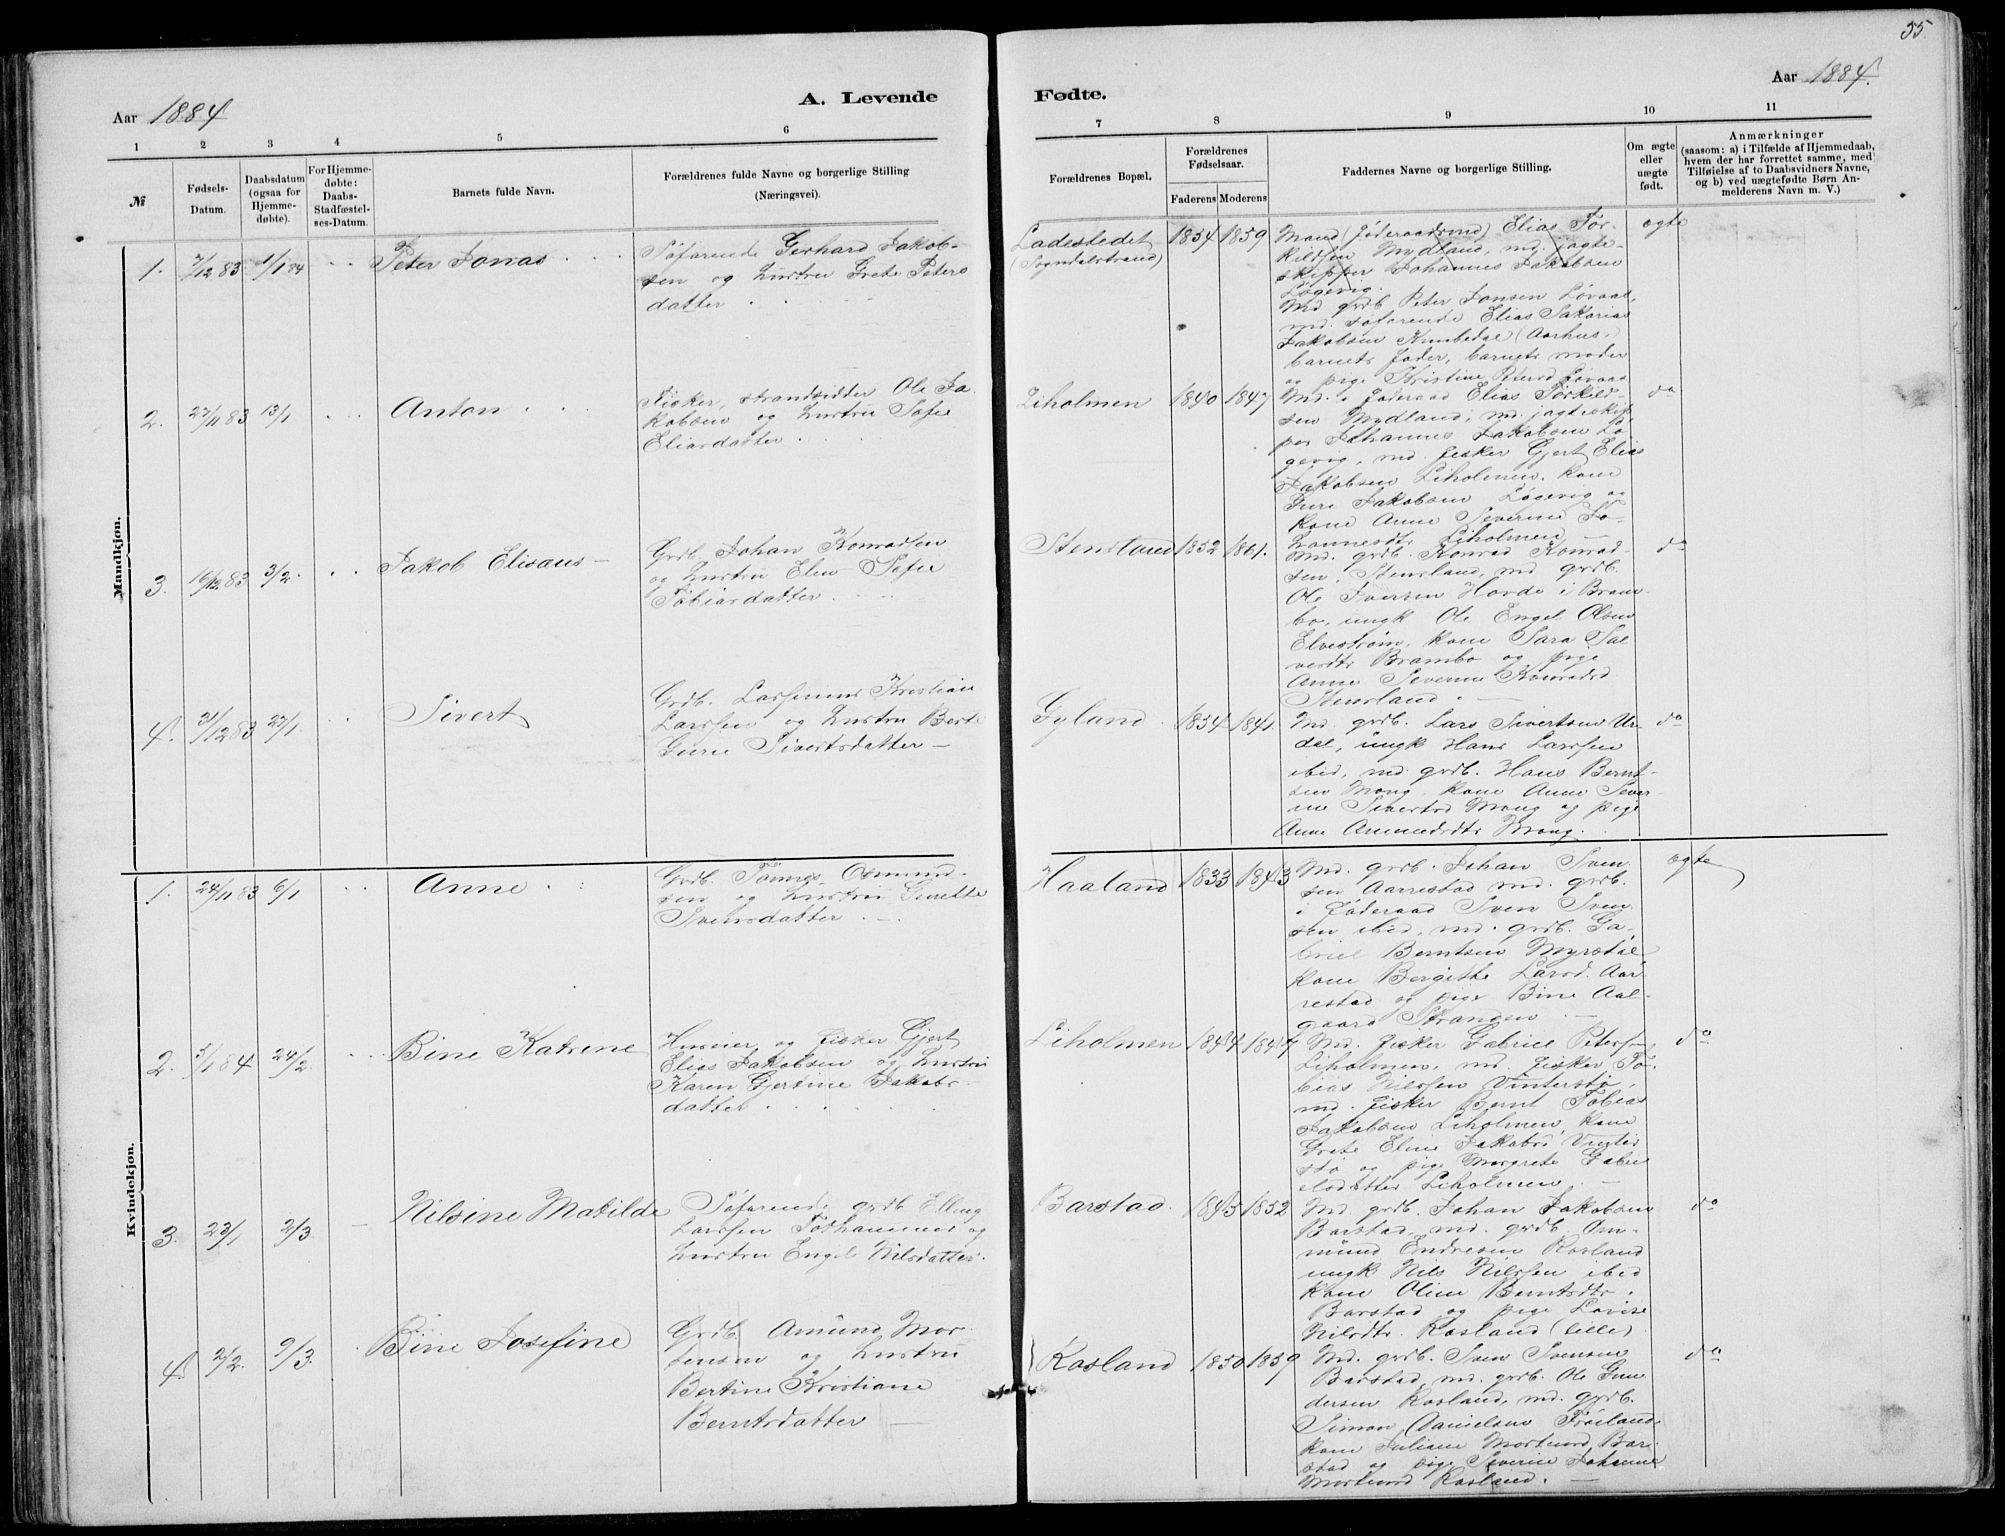 55.
Aar 1884
A. Levende
Fødte.
Aar 1884.
1 2 3 4 5 6 7 8 9 10 11
№
Fødsels-
Datum.
Daabsdatum
(ogsaa for
Hjemme-
døbte).
For Hjemme-
døbte:
Daabs-
Stadfæstel-
ses-Datum.
Barnets fulde Navn.
Forældrenes fulde Navne og borgerlige Stilling
(Næringsvei).
Forældrenes Bopæl.
Forældrenes
Fødselsaar.
Faderens Moderens
Faddernes Navne og borgerlige Stilling.
Om ægte
eller
uægte
født.
Anmærkninger
(saasom: a) i Tilfælde af Hjemmedaab,
hvem der har forrettet samme, med
Tilføielse af to Daabsvidners Navne,
og b) ved uægtefødte Børn An-
melderens Navn m. V.)
Mandkjøn.
1. 7/12 83 1/1 84 Peter Jonas
Søfarende Gerhard Jakob-
sen og hustru Grete Peters
datter
Ladestedet
(Sogndalstrand)
1854 1859
Mand (føderaadsmd) Elias Tor-
kildsen Mydland, md. jagte-
skipper Johannes Jakobsen
Løgevig.
Md grdb Peter Jonsen Løvaas,
md. søfarende Elias Sakarias
Jakobsen (Aarhus,)
barnets fader, barnets moder
og pige Kristine Petersd Løvaas
ægte
2. 27/11 83 13/1 Anton
Fisker, strandsidder Ole Ja
kobsen og hustru Sofie
Eliasdatter
Liholmen
1840 1847
Md. i føderaad Elias Torkild-
sen Mydland, md. jagteskip
per Johannes Jakobsen Lø
gevig, md. fisker Gjert Elias
Jakobsen Liholmen, kone
Gure Jakobsen Løgevig og
kone Anne Severine Jo-
hannesdtr Liholmen
do
3. 16/12 83 3/2 Jakob Elisæus
Grdb. Johan Konradsen
og hustru Elen Sofie
Tobiasdatter
Stensland
1852 1861.
Md. grdb. Konrad Konrad-
sen, Stensland, md grdb.
Ole Iversen Hovde i Bram-
bo, ungk Ole Engel Olsen
Elvestrøm, kone Sara Sal
vesdtr Brambo og pige
Anne Severine Konradsd
Stensland.
do
4. 31/12 83 27/1 Sivert
Grdb. Larsenius Kristian
Larsen og hustru Berte
Gurie Sivertsdatter
Gyland
1854 1841.
Md. grdb. Lars Sivertsen Ur-
dal, ungk Hans Larsen
ibid, md. grdb. Hans Bernt-
sen Mong, kone Anne Sever-
ine Sivertsd Mong og pige
Anne Ammundsdtr Mong.
do
Kvindekjøn.
1. 24/11 83 6/1 Anne
Grdb. Tønnes Osmund-
sen og hustru Gurette
Svensdatter
Haaland
1833 1843
Md. grdb. Johan Sven
sen Aarrestad md. grdb.
i føderaad Sven Sven
sen ibid, md. grdb. Ga-
briel Berntsen Myrstøl,
kone Bergitte Larsd. Aar
restad og pige Bine Aal-
gaard Stranden
ægte
2. 5/1 84 24/2 Bine Katrine
Huseier og fisker Gjert
Elias Jakobsen og hustru
Karen Gjertine Jakobs-
datter
Liholmen
1844 1847
Md. fisker Gabriel Petersen
Liholmen, md. fisker To-
bias Nilssen Vinterstø,
md. fisker Bernt Tobias
Jakobsen Liholmen, kone
Grete Eline Jakobsd Vinter
stø og pige Margrete Gabri
elsdatter Liholmen
do
3. 23/1 2/3 Nilsine Matilde
Søfarend, grdb Elling
Larsen Tothammer og
hustru Engel Nilsdatter.
Barstad.
1845 1852
Md. grdb. Johan Jakobsen
Barstad, md. grdb Om-
mund Endresen Rosland
ungk Nils Nilssen ibid
kone Oline Berntsdtr
Barstad og pige Lovise
Nilsdtr. Rosland (lille).
do
4. 2/2. 9/3. Bine Josefine
Grdb. Amund Mor-
tensen og hustru
Bertine Kristiane
Berntsdatter
Rosland
1850 1859
Md. grdb. Sven Svensen
Barstad, md. grdb. Ole Gun
dersen Rosland, md. grdb.
Simon Danielsen Frøiland,
kone Juliane Mortensd Bar-
stad og pige Severine Johanne
Mortensd Rosland.
do